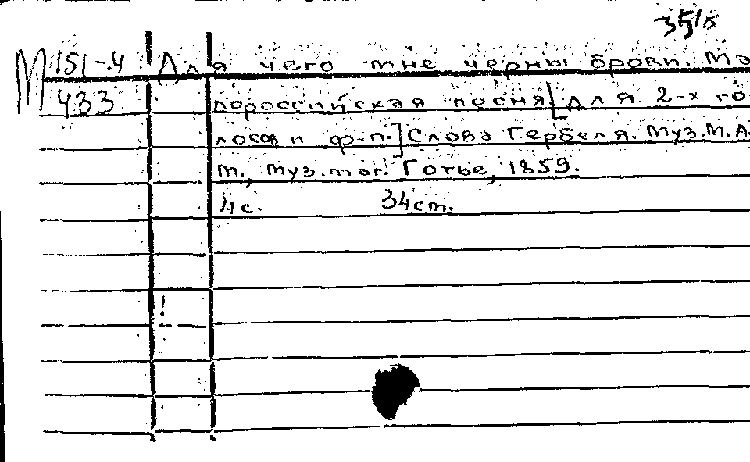 35/8
М 151-4 Для чего мне черны брови. Ма
433 лороссийская песня [для 2-х го
лосов и ф-п.] Слова Гербеля. Муз. М.А.
М., муз. маг. Готье, 1859.
4с. 34см.